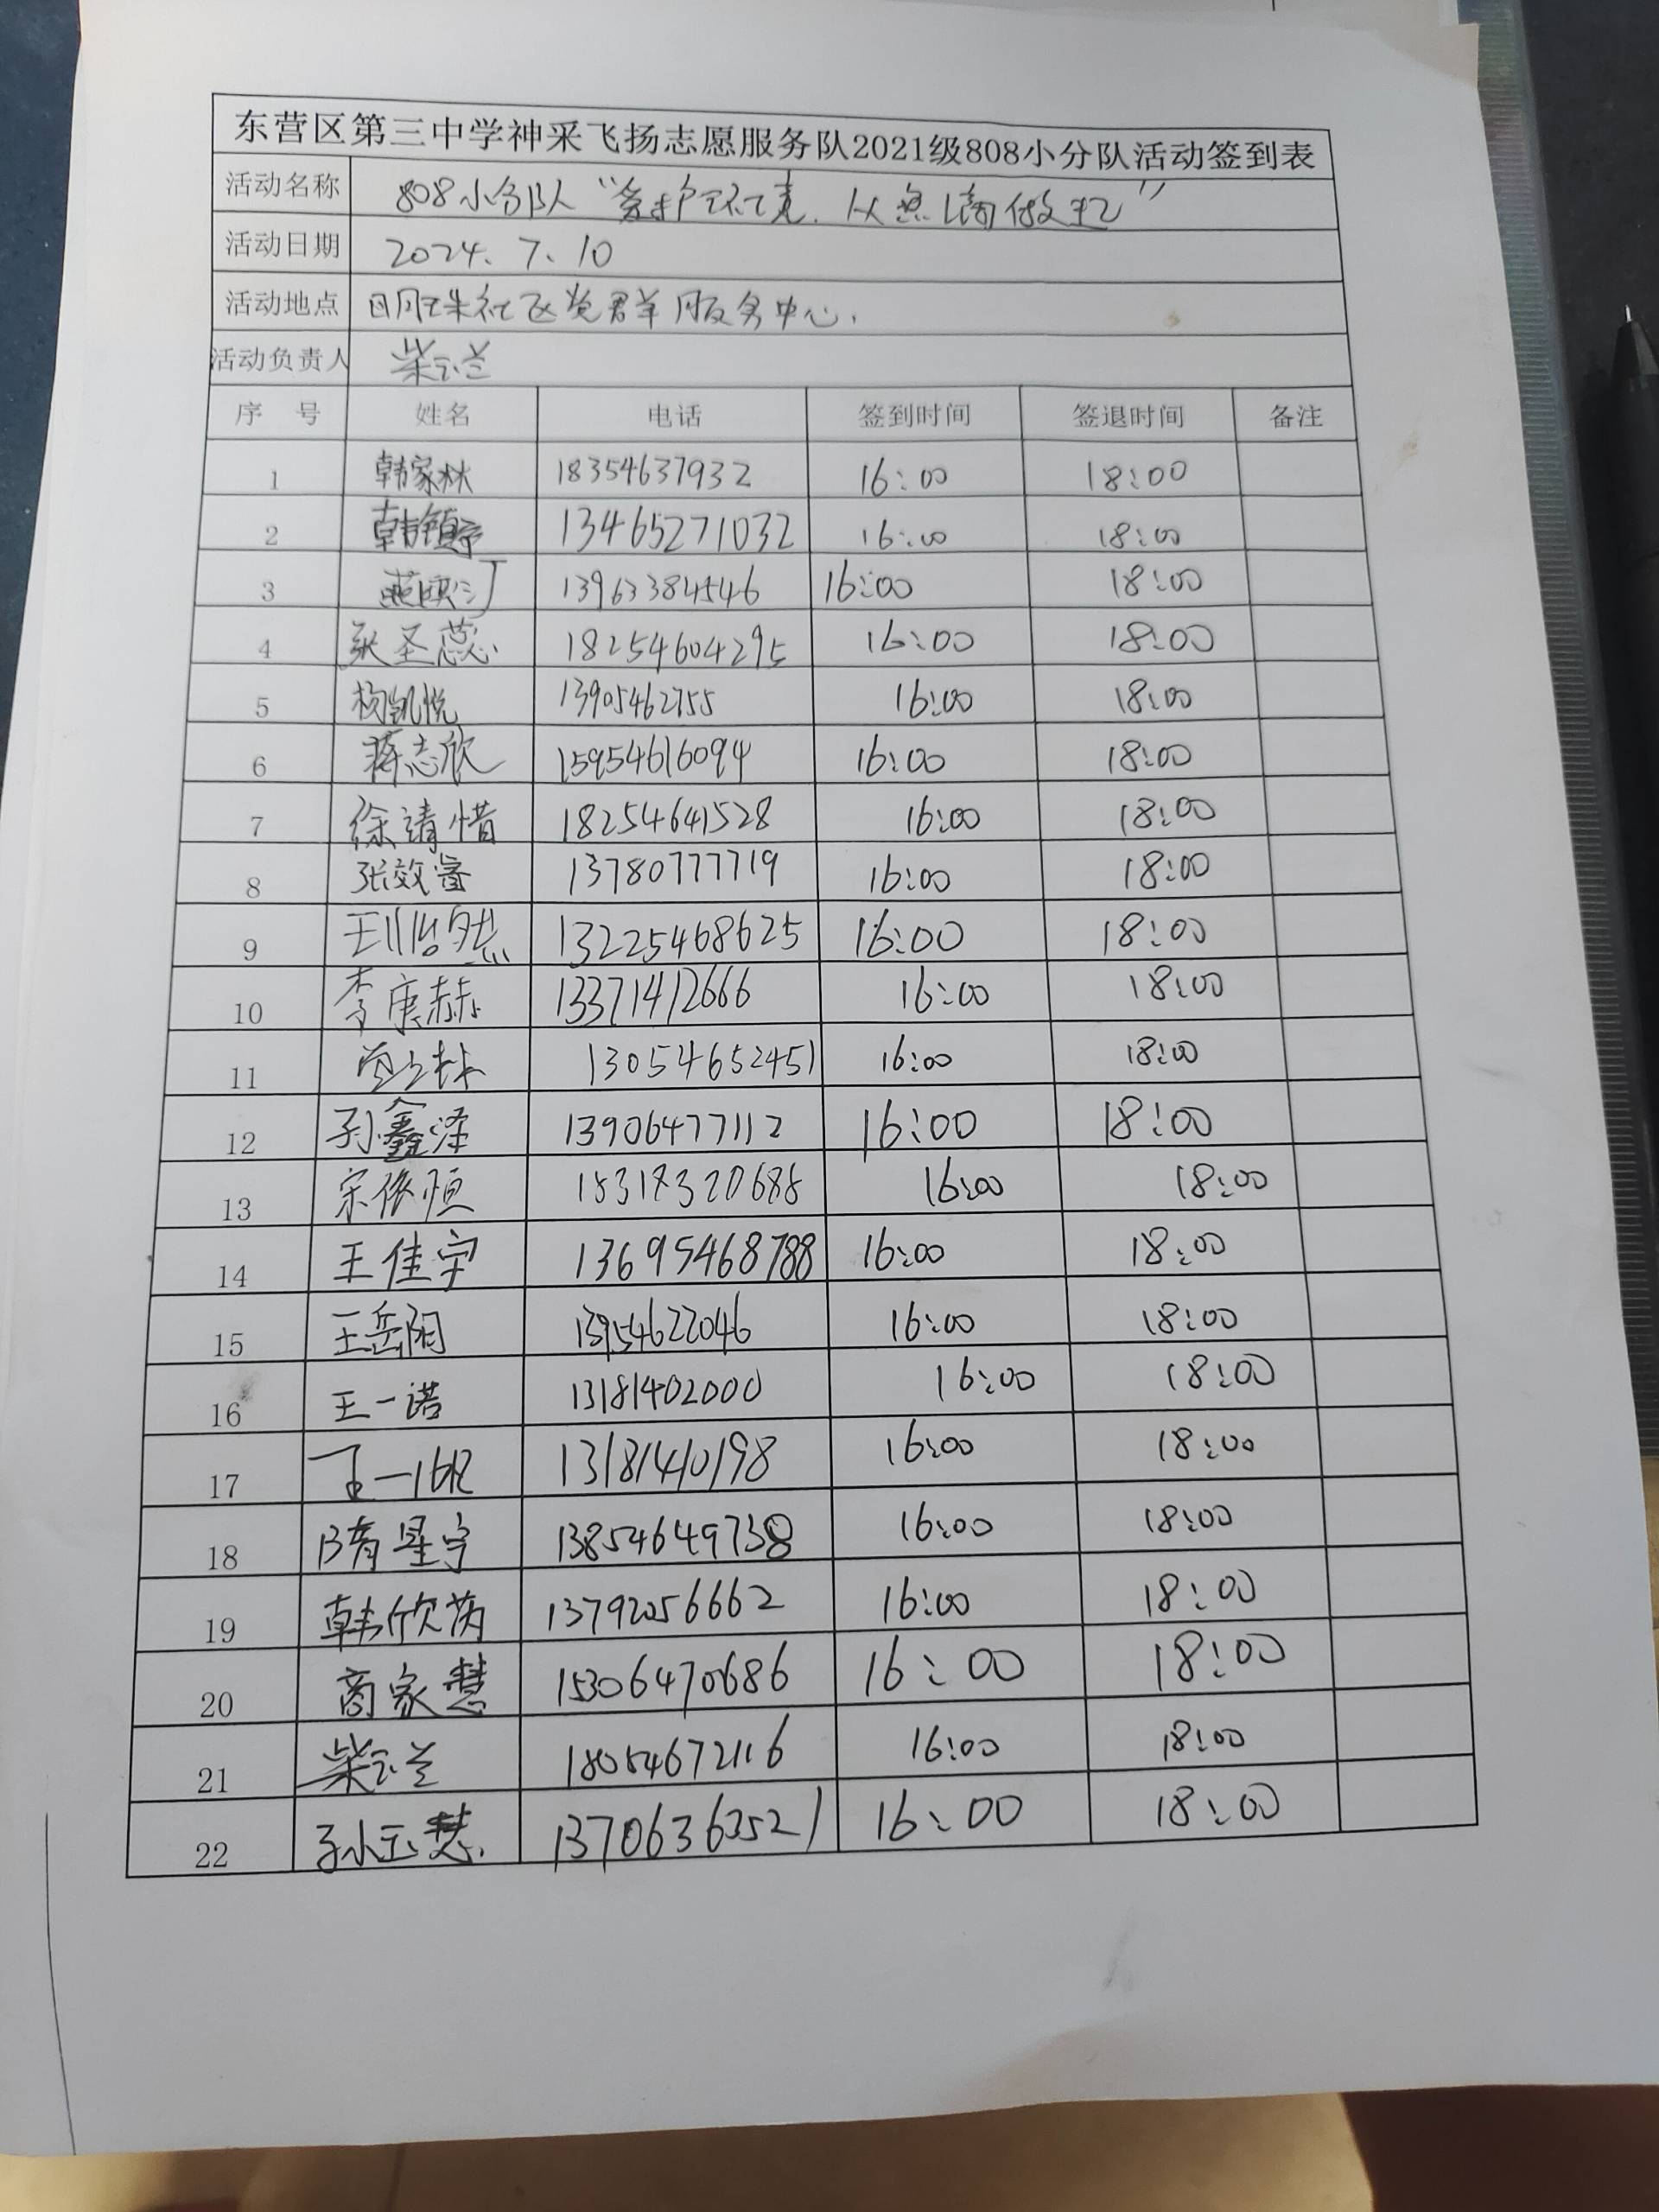 东营区第三中学神采飞扬志愿服务队2021级808小分队活动签到表
活动名称 808小分队“爱护环境、从点滴做起”
活动日期 2024.7.10
活动地点 明珠社区党群服务中心.
活动负责人 柴云兰
序号 姓名 电话 签到时间 签退时间 备注
1 韩家林 18354637932 16:00 18:00
2 韩镇 13465271032 16:00 18:00
3 13963384546 16:00 18:00
4 张圣蕊 18254604295 16:00 18:00
5 杨凯悦 13905462755 16:00 18:00
6 蒋志欣 15954616094 16:00 18:00
7 徐靖惜 18254641528 16:00 18:00
8 张效睿 13780777719 16:00 18:00
9 王 然 13225468625 16:00 18:00
10 李庚赫 13371412666 16:00 18:00
11 13054652451 16:00 18:00
12 孙鑫泽 13906477112 16:00 18:00
13 宋依恒 18318320688 16:00 18:00
14 王佳宇 13695468788 16:00 18:00
15 王岳阳 13954622046 16:00 18:00
16 王一诺 13181402000 16:00 18:00
17 王一 13181410198 16:00 18:00
18 隋星宇 13854649738 16:00 18:00
19 韩欣芮 13792056662 16:00 18:00
20 商家慧 15306470686 16:00 18:00
21 柴云兰 18054672116 16:00 18:00
22 孙玉慧 13706363521 16:00 18:00